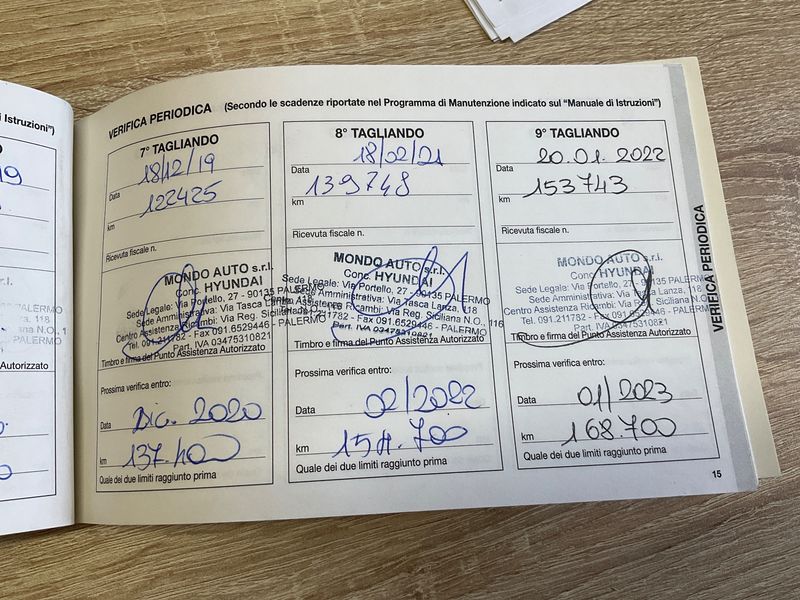 i Istruzioni")
O
19
PALERMO
118
N.O., 1
PALERMO
Autorizzato
VERIFICA PERIODICA (Secondo le scadenze riportate nel Programma di Manutenzione indicato sul "Manuale di Istruzioni")
7° TAGLIANDO
18/12/19
Data
122425
km
Ricevuta fiscale n.
MONDO AUTO s.r.l.
Conc. HYUNDAI
Sede Legale: Via Portello, 27 - 90135 PALERMO
Sede Amministrativa: Via Tasca Lanza, 118
Centro Assistenza Ricambi: Via Reg. Siciliana N.O., 116
Tel. 091.211782 - Fax 091.6529446 - PALERMO
Part. IVA 03475310821
Timbro e firma del Punto Assistenza Autorizzato
Prossima verifica entro:
Data Dic. 2020
km 137.400
Quale dei due limiti raggiunto prima
8° TAGLIANDO
18/02/21
Data
139748
km
Ricevuta fiscale n.
MONDO AUTO s.r.l.
Conc. HYUNDAI
Sede Legale: Via Portello, 27 - 90135 PALERMO
Sede Amministrativa: Via Tasca Lanza, 118
Centro Assistenza Ricambi: Via Reg. Siciliana N.O., 116
Tel. 091.211782 - Fax 091.6529446 - PALERMO
Part. IVA 03475310821
Timbro e firma del Punto Assistenza Autorizzato
Prossima verifica entro:
Data 02/2022
km
Quale dei due limiti raggiunto prima
9° TAGLIANDO
20.01.2022
Data
153743
km
Ricevuta fiscale n.
MONDO AUTO s.r.l.
Conc. HYUNDAI
Sede Legale: Via Portello, 27 - 90135 PALERMO
Sede Amministrativa: Via Tasca Lanza, 118
Centro Assistenza Ricambi: Via Reg. Siciliana N.O., 116
Tel. 091.211782 - Fax 091.6529446 - PALERMO
Part. IVA 03475310821
Timbro e firma del Punto Assistenza Autorizzato
Prossima verifica entro:
Data 01/2023
km 168.700
Quale dei due limiti raggiunto prima
VERIFICA PERIODICA
15